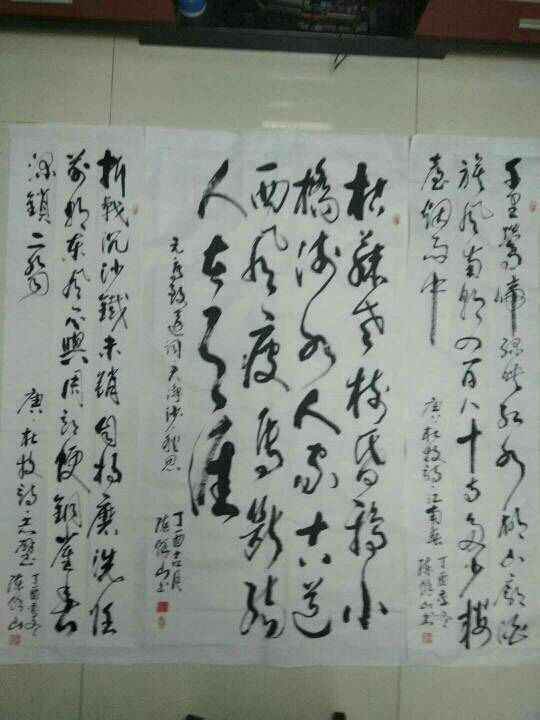 千里鶯啼綠映紅水村山郭酒
旗風南朝四百八十寺多少樓
臺烟雨中
唐·杜牧詩江南春 丁酉季冬
陈山书
枯藤老樹昏鴉小
橋流水人家古道
西風瘦馬斷腸
人在天涯
元·馬致遠詞天淨沙·秋思
丁酉月
陈山书
折戟沉沙鐵未銷自將磨洗認
前朝東風不與周郎便銅雀春
深鎖二喬
唐·杜牧詩·赤壁 丁酉季冬
陈山